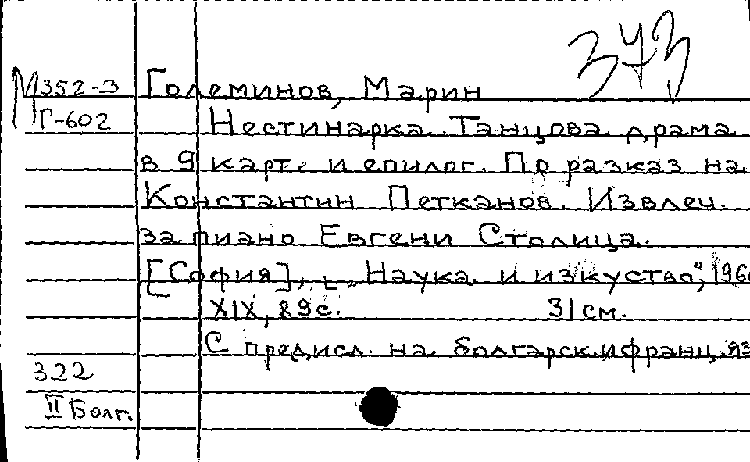 373
М352-3 Големинов, Марин
Г-602 Нестинарка. Танцова драма
в 9 карт. и епилог. По разказ на
Константин Петканов. Извлеч.
за пиано Евгени Столица.
[София], "Наука и изкуство", 196
XIX, 89 с. 31 см.
С предисл. на болгарск. и франц. яз
322
II Болг.